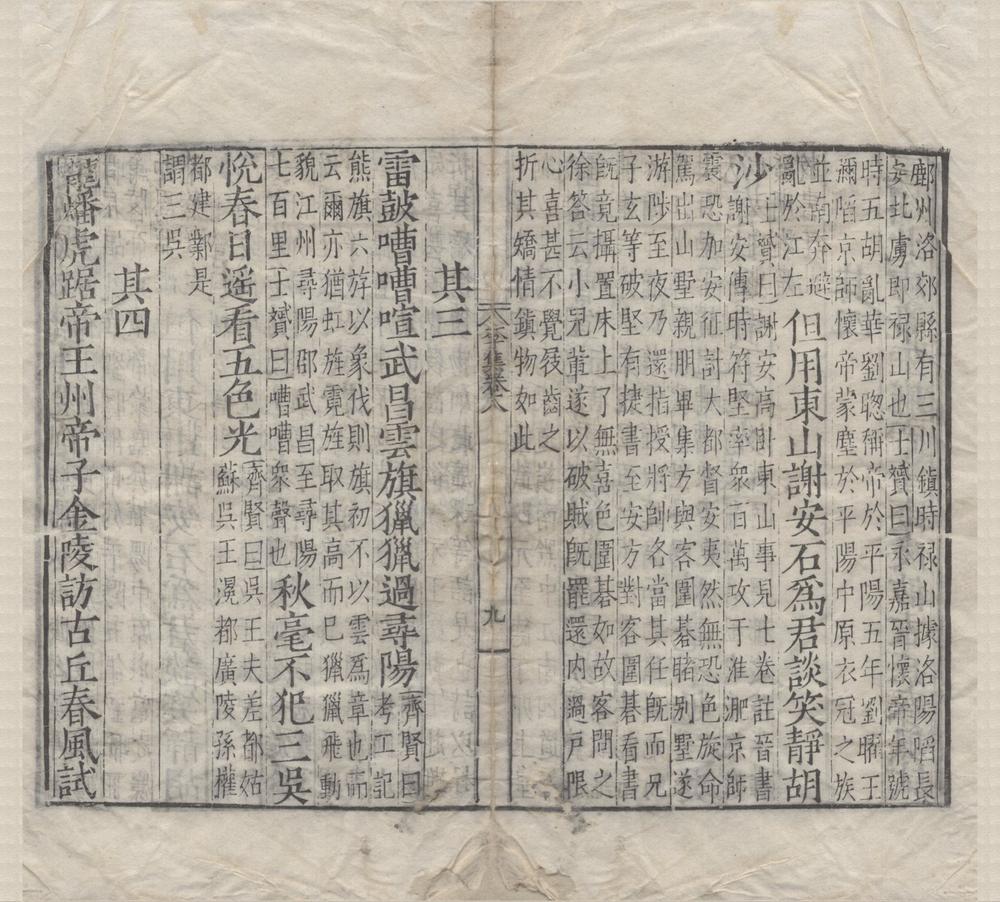 鄜州洛郊縣有三川鎮時禄山據洛陽䧟長
安北虜即禄山也士贇曰永嘉晉懷帝年號
時五胡亂華劉聰稱帝於平陽五年劉曜王
彌䧟京師懷帝蒙塵於平陽中原衣冠之族
並南奔避
亂於江左但用東山謝安石爲君談笑靜胡
士贇曰謝安高卧東山事見七卷註晉書
沙謝安傳時符堅率衆百萬攻于淮淝京師
震恐加安征討大都督安夷然無恐色旋命
駕出山墅親朋畢集方與客圍碁賭别墅遂
游陟至夜乃還指授將帥各當其任旣而兄
子玄等破堅有捷書至安方對客圍碁看書
旣竟攝置床上了無喜色圍碁如故客問之
徐答云小兒軰遂以破賊旣罷還内過戸限
心喜甚不覺屐齒之
折其矯情鎮物如此
卷八
九
其三
雷鼓嘈嘈喧武昌雲旗獵獵過尋陽齊賢曰
考工記
熊旗六斿以象伐則旗初不以雲爲章也而
云爾亦猶虹旌霓旌取其高而已獵獵飛動
貌江州尋陽郡武昌至尋陽
七百里士贇曰嘈嘈衆聲也秋毫不犯三吳
悅春日遥看五色光齊賢曰吳王夫差都姑
蘇吳王濞都廣陵孫權
都建鄴是
謂三吳
其四
龍蟠虎踞帝王州帝子金陵訪古丘春風試